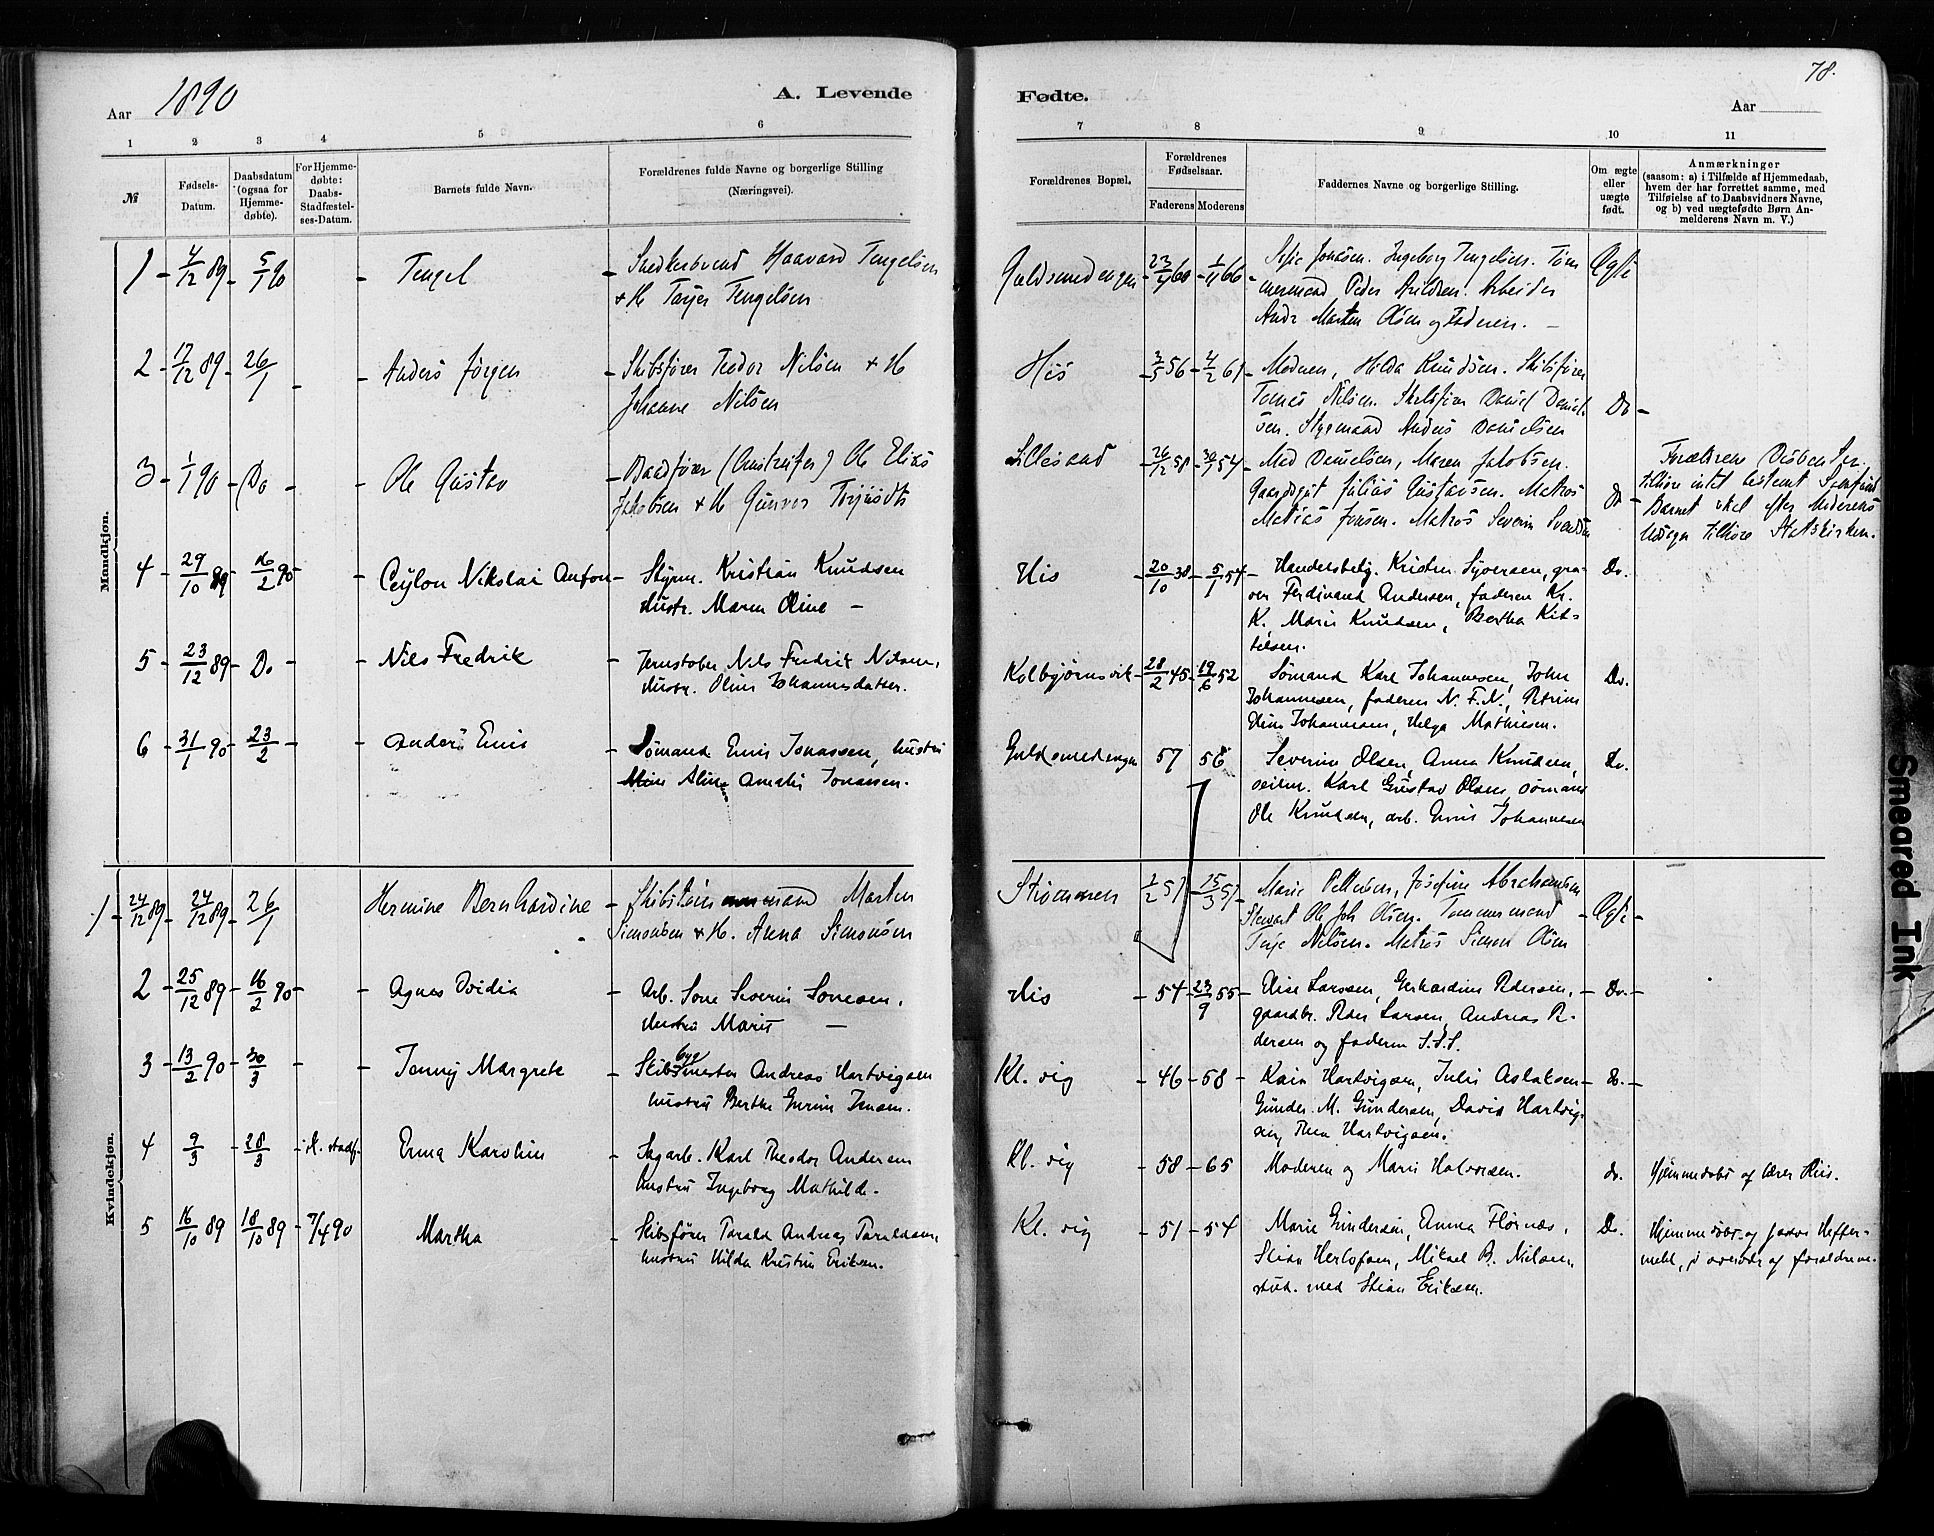 Aar 1890
A. Levende
1 2 3 4 5 6
№
Fødsels-Datum.
Daabsdatum (ogsaa for Hjemmedøbte).
For Hjemmedøbte: Daabs-Stadfæstelses-Datum.
Barnets fulde Navn.
Forældrenes fulde Navne og borgerlige Stilling (Næringsvei).
Mandkjøn.
1 4/12 89 5/1 90 Tengel Snedkersvend Haavard Tengelsen
+ H Tarjer Tengelsen
2 17/12 89 26/1 Anders Jørgen Skibsfører Teodor Nilsen + H
Johanne Nilsen
3 1/1 90 Do Ole Gustav Baadfører Ole Elias
Jakobsen + H Gunvor
4 29/10 89 16/2 90 Ceylon Nikolai Anton Styrm. Kristian Knudsen
Hustr. Maren Oline
5 23/12 89 Do Nils Fredrik Jernstøber Nils Fredrik Nilsen,
Hustr. Oline Johannesdatter.
6 31/1 90 23/2 Anders Emis Sømand Emis Jonassen, hustru
Aline Amalie Jonassen.
Kvindekjøn.
1 24/12 89 24/12 89 26/1 Hermine Bernhardine Skibstømmermand Marten
Simonsen + H. Anna Simonsen
2 25/12 89 16/2 90 Agnes Ovidia Arb. Sone Severin Sonesen,
Hustru Marie
3 13/2 90 30/3 Jenny Margrete Skibsbygmester Andreas Hartvigsen
hustru Berthe
4 9/3 28/3 i. stadf. Emma Karoline Sagarb. Karl Theodor Andersen
hustru Ingeborg Mathilde.
5 16/10 89 18/10 89 7/4 90 Martha Skibsfører Tarald Andreas Taraldsen,
hustru Hilda Kristine Eriksen.
78.
Fødte.
Aar
7 8 9 10 11
Forældrenes Bopæl.
Forældrenes Fødselsaar.
Faderens Moderens
Faddernes Navne og borgerlige Stilling.
Om ægte eller uægte født.
Anmærkninger
(saasom: a) i Tilfælde af Hjemmedaab, hvem der har forrettet samme, med Tilføielse af to Daabsvidners Navne, og b) ved uægtefødte Børn Anmelderens Navn m. V.)
Guldsmedengen 23/4 60 1/11 66 Jonasen. Ingeborg Tengelsen. Tøm
mermand Peder Arildsen. Arbeider
Andr Marten Olsen og Faderen. Ægte
His 3/5 56 4/2 61 Moderen, Hilda Knudsen. Skibsfører
Tomas Nilsen. Skibsfører Daniel Daniel-
sen. Styrmand Anders Danielsen Do
Lillesand 26/12 58 30/1 54 Med Danielsen, Maren Jakobsen.
Gaardsgut Julius Gustavsen. Matros
Matias Jensen. Matros Severin Do
Forældrene Disbenter.
tilhøre intet bestemt Samfund
Barnet skal efter Moderens
Udsagn tilhøre Statskirken.
His 20/10 38 5/1 54 Handelsbetj. Kristen Syversen, gra-
ver Ferdinand Andersen, faderen Kr.
K. Marie Knudsen, Bertha Kit-
telsen. Do.
Kolbjørnsvik 28/2 45 19/6 52 Sømand Karl Johannesen, John
Johannesen, faderen N. F. N., Petrine
Johannesen, Helga Mathiesen. Do.
Guldsmedengen 57 56 Severine Olsen, Anna Knudsen,
seilm. Karl Gustav Olsen, sømand
Ole Knudsen, arb. Emis Johannesen Do.
Strømmen 1/2 51 15/3 51 Marie Pettersen, Josefine Abrahamsen
Stewart Ole Joh Olsen. Tømmermand
Terje Nilsen. Matros Simon Olsen Ægte
His 54 23/9 55 Elise Larssen, Gerhardine Pedersen,
gaardbr. Peder Larsen, Andreas P-
dersen og faderen S.S.S. Do.
Kl. vig 46 58 Karen Hartvigsen, Julie Aslaksen
Gunder M. Gundersen, David Hartvig-
sen, Thea Hartvigsen. do.
Kl. vig 58 65 Moderen og Marie Halvorsen. do. Hjemmedøbt af lærer Riis.
Kl. vig 51 54 Marie Gundersen, Anna Flørnæs,
Stian Herlofsen, Mikael B. Nielsen,
stud. med Stian Eriksen. Do. Hjemmedøbt af pastor Hefter-
mehl, i overvær af forældrene.
Smeared Ink